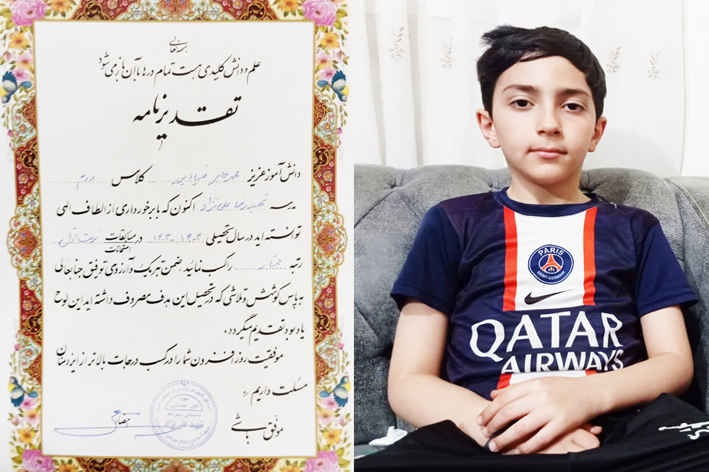 علم و دانش کلیدی هست تمام درها با آن باز می شود
تقدیرنامه
دانش آموز عزیز کلاس
مدرسه اکنون که با برخورداری از الطاف الهی
توانسته اید در سال تحصیلی ۱۴۰۳-۱۴۰۲ در مسابقات
رتبه کسب نمائید، ضمن تبریک و آرزوی توفیق جنابعالی
به پاس کوشش و تلاشی که در تحصیل این هدف مصروف داشته اید این لوح
یادبود تقدیم میگردد.
موفقیت روزافزون شما را در کسب درجات بالاتر از ایزد منان
مسئلت داریم
موفق باشی
PARIS
QATAR
AIRWAYS